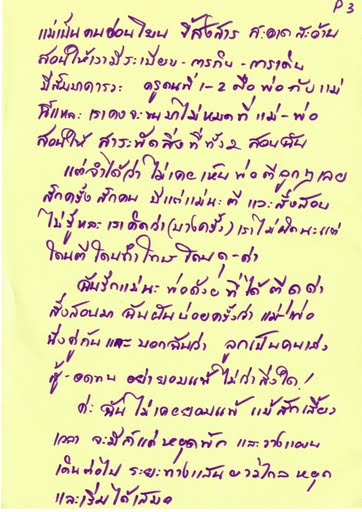 P 3
แม่เป็นคนอ่อนโยน ขี้สงสาร สะอาดสะอ้าน
สอนให้เรามีระเบียบ - การกิน - การเดิน
มีสัมมาคารวะ ครูคนที่ 1-2 คือพ่อกับแม่
นี่แหละ เราคงจะจบไม่หมดที่แม่-พ่อ
สอนให้ สาระพัดสิ่งที่ทั้ง 2 สอนฉัน
แต่จำได้ว่า ไม่เคยเห็นพ่อตีลูกๆ เลย
สักครั้งสักคน มีแต่แม่นะตี และสั่งสอน
ไม่รู้หละ เราคิดว่า (บางครั้ง) เราไม่ผิดนะแต่
โดนตีโดนทำโทษ โดนดุ-ด่า
ฉันรักแม่นะ พ่อด้วย ที่ได้ตีดุด่า
สั่งสอนมา ฉันฝันบ่อยครั้งว่า แม่พ่อ
นั่งคู่กัน และ บอกฉันว่า ลูกเป็นคนเก่ง
สู้-อดทน อย่ายอมแพ้ ไม่ว่าสิ่งใด!
ค่ะ ฉันไม่เคยยอมแพ้ แม้สักเสี้ยว
เวลา จะมีก็แค่หยุดพัก และวางแผน
เดินต่อไป ระยะทางแสนยาวไกล หยุด
และเริ่มได้เสมอ